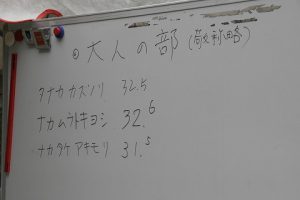 ◎大人の部(敬称略)
タナカカズノリ 32.5
ナカムラトキヨシ 32.6
ナカタケアキモリ 31.5